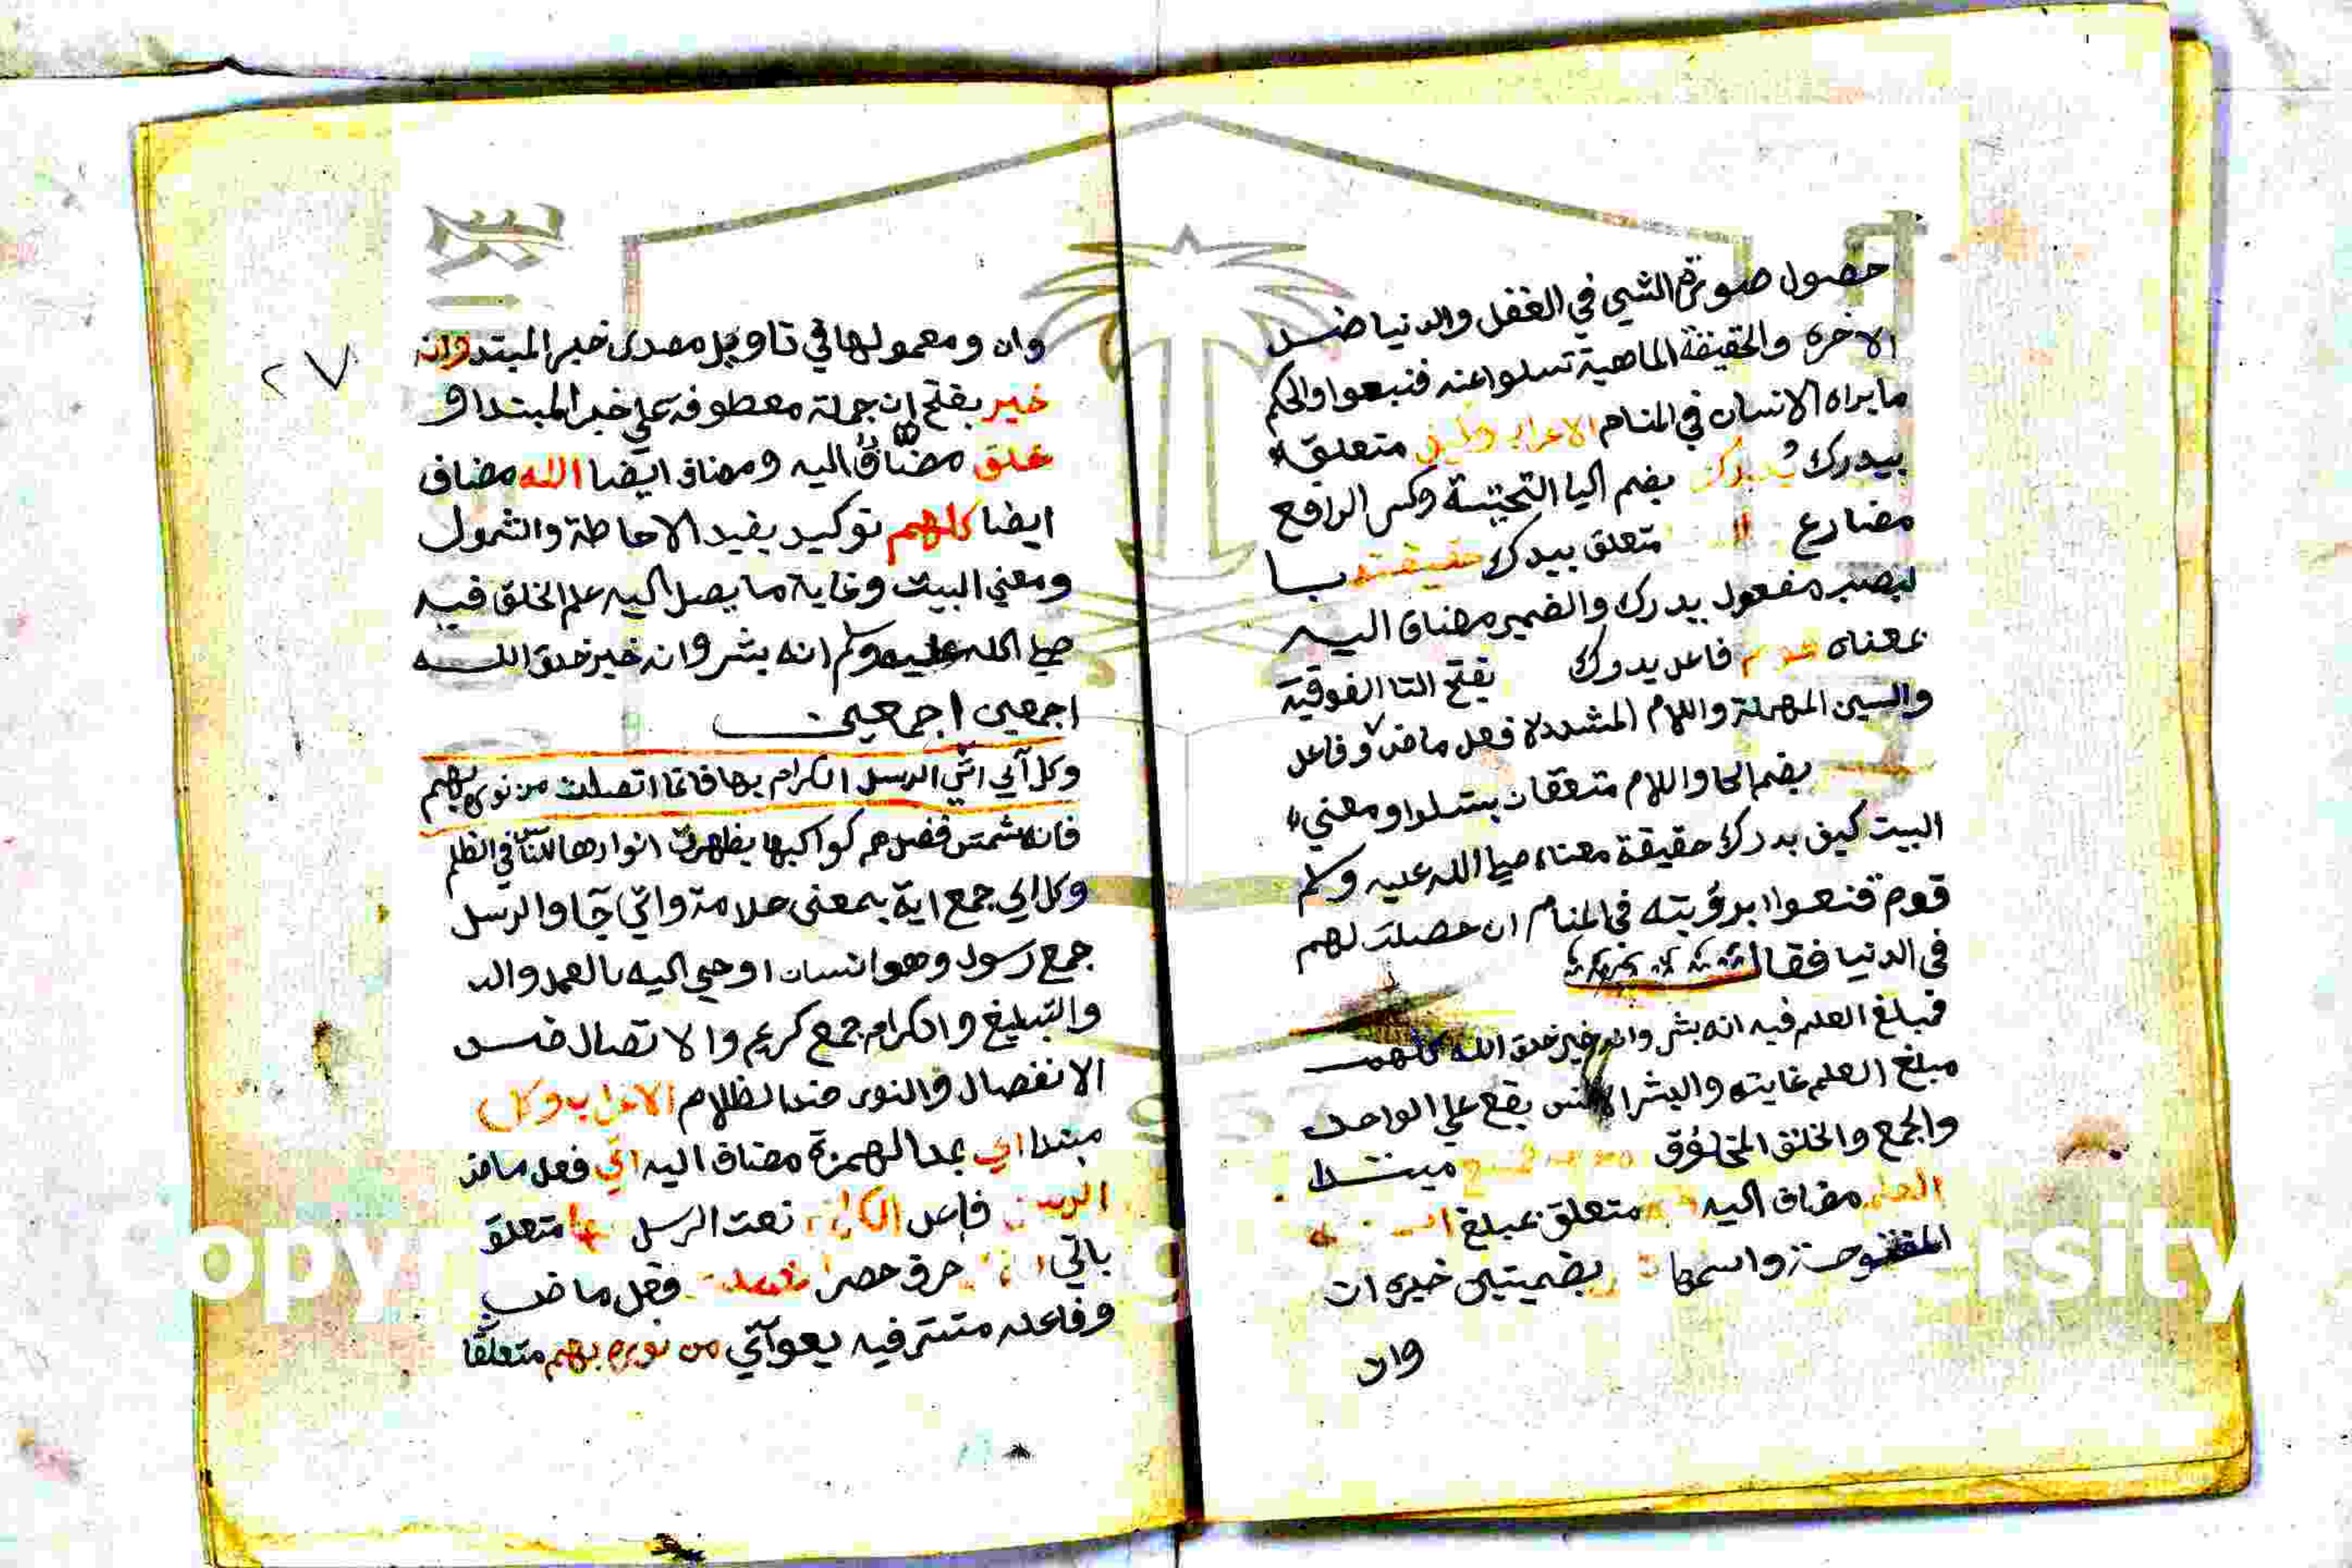 حصول صورة الشي في العقل والدنيا ضد
الاخرة والحقيقة الماهية تسلوا عنه قنعوا والحلم
ما يراه الانسان في المنام الاعراب وكيف متعلق
بيدرك يُدرك بضم اليا التحتية وكسر الرا فع
مضارع متعلق بيدرك حقيقته با
لنصب مفعول يدرك والضمير مضاف اليه
بمعناه قوم فاعل يدرك بفتح التا الفوقية
والسين المهملة واللام المشددة فعل ماض وفاعل
بضم الحا واللام متعلقان بتسلوا ومعني
البيت كيف يدرك حقيقة معناه صلي الله عليه وسلم
قوم قنعوا برؤيته في المنام ان حصلت لهم
في الدنيا فقال
فمبلغ العلم فيه انه بشر وانه خير خلق الله كلهم
مبلغ العلم غايته والبشر الانس يقع علي الواحد
والجمع والخلق المخلوق مبتدا
العلم مضاف اليه متعلق بمبلغ
المفتوحة واسمها بضميتين خبر ان
وان
٢٧
وان ومعمولها في تاويل مصدر خبر المبتدا وانه
خير بفتح ان جملة معطوفة علي خبر المبتدا و
خلق مضاف اليه ومضاف ايضا الله مضاف
ايضا كلهم توكيد يفيد الاحاطة والشمول
ومعني البيت وغاية ما يصل اليه علم الخلق فيه
صلي الله عليه وسلم انه بشر وانه خير خلق الله
اجمعين اجمعين
وكل آي اتي الرسل الكرام بها فانما اتصلت من نوره بهم
فانه شمس فضل هم كواكبها يظهرن انوارها للناس في الظلم
وكل اي جمع اية بمعنى علامة واتي جا والرسل
جمع رسول وهو انسان اوحي اليه بالعمل والد
والتبليغ والكرام جمع كريم والاتصال ضد
الانفصال والنور ضد الظلام الاعراب وكل
مبتدا اي بمد الهمزة مضاف اليه اتي فعل ماض
الرسل فاعل الكرام نعت الرسل بها متعلق
باتي حرف حصر اتصلت فعل ماض
وفاعله مستتر فيه يعو آي من نوره بهم متعلقا